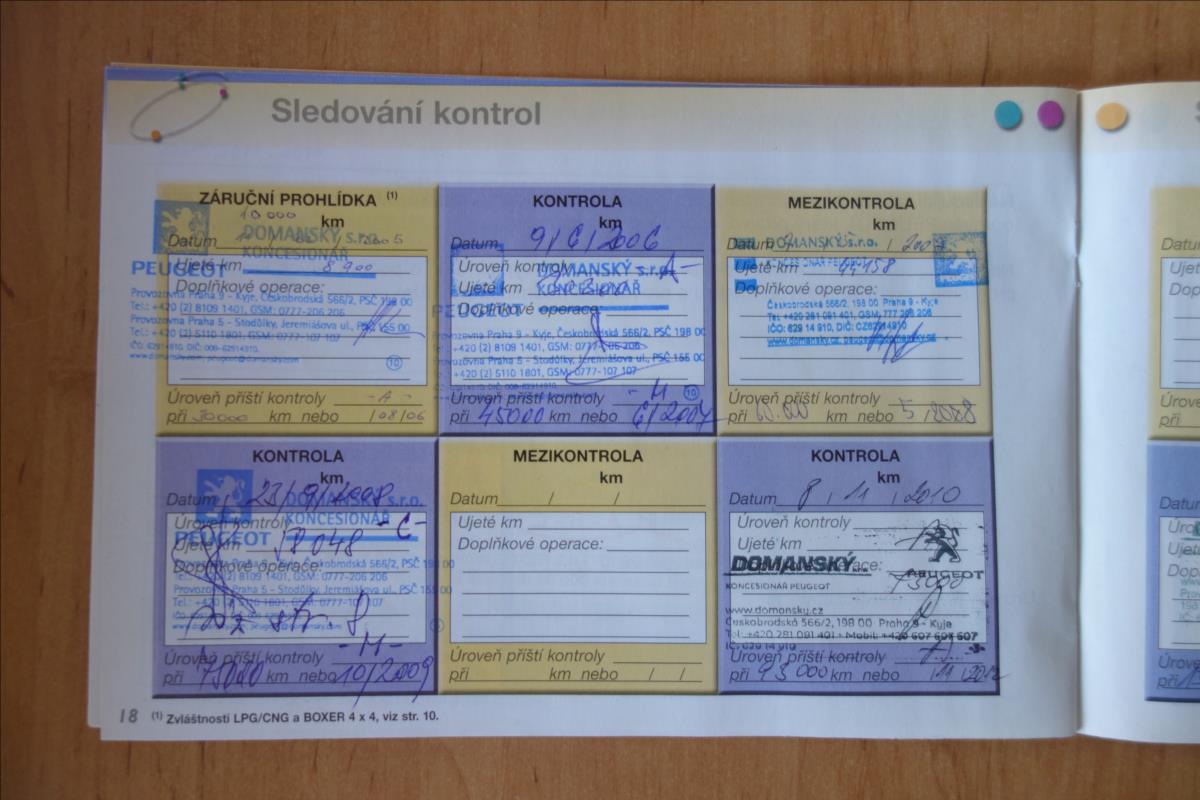 Sledování kontrol
ZÁRUČNÍ PROHLÍDKA (1)
10 000 km
Datum / / 2005
DOMANSKÝ s.r.o.
KONCESIONÁŘ
PEUGEOT
Ujeté km 8 900
Doplňkové operace:
Provozovna Praha 9 - Kyje, Českobrodská 566/2, PSČ 198 00
Tel.: +420 (2) 8109 1401, GSM: 0777-206 206
Provozovna Praha 5 - Stodůlky, Jeremiášova ul., PSČ 155 00
Tel.: +420 (2) 5110 1801, GSM: 0777-107 107
10
Úroveň příští kontroly - A -
při 30000 km nebo /08/06
KONTROLA
km
Datum 9/6/2006
Úroveň kontroly - A -
DOMANSKÝ s.r.o.
KONCESIONÁŘ
Ujeté km
Doplňkové operace:
PEUGEOT
Provozovna Praha 9 - Kyje, Českobrodská 566/2, PSČ 198 00
Tel.: +420 (2) 8109 1401, GSM: 0777-206 206
Provozovna Praha 5 - Stodůlky, Jeremiášova ul., PSČ 155 00
Tel.: +420 (2) 5110 1801, GSM: 0777-107 107
10
Úroveň příští kontroly - M -
při 45000 km nebo 6/2007
MEZIKONTROLA
km
Datum / / 2007
DOMANSKÝ s.r.o.
KONCESIONÁŘ PEUGEOT
Ujeté km 44158
Doplňkové operace:
Českobrodská 566/2, 198 00 Praha 9 - Kyje
Tel: +420 281 091 401, GSM: 777 206 206
IČO: 629 14 910, DIČ: CZ62914910
Úroveň příští kontroly
při 60.000 km nebo 5/2008
KONTROLA
km
Datum 23/9/2008
DOMANSKÝ s.r.o.
KONCESIONÁŘ
PEUGEOT
Úroveň kontroly - C -
Ujeté km 58048
Doplňkové operace:
Provozovna Praha 9 - Kyje, Českobrodská 566/2, PSČ 198 00
Tel.: +420 (2) 8109 1401, GSM: 0777-206 206
Provozovna Praha 5 - Stodůlky, Jeremiášova ul., PSČ 155 00
Tel.: +420 (2) 5110 1801, GSM: 0777-107 107
viz str. 8
Úroveň příští kontroly - M -
při 75000 km nebo 10/2009
MEZIKONTROLA
km
Datum / /
Ujeté km
Doplňkové operace:
Úroveň příští kontroly
při km nebo / /
KONTROLA
km
Datum 8/11/2010
Úroveň kontroly
Ujeté km 73000
Doplňkové operace:
DOMANSKÝ s.r.o.
KONCESIONÁŘ PEUGEOT
PEUGEOT
www.domansky.cz
Českobrodská 566/2, 198 00 Praha 9 - Kyje
Tel.: +420 281 091 401 • Mobil: +420 607 607 607
IČ: 629 14 910
-3-
Úroveň příští kontroly
při 93000 km nebo /11/2012
18
(1) Zvláštnosti LPG/CNG a BOXER 4 x 4, viz str. 10.